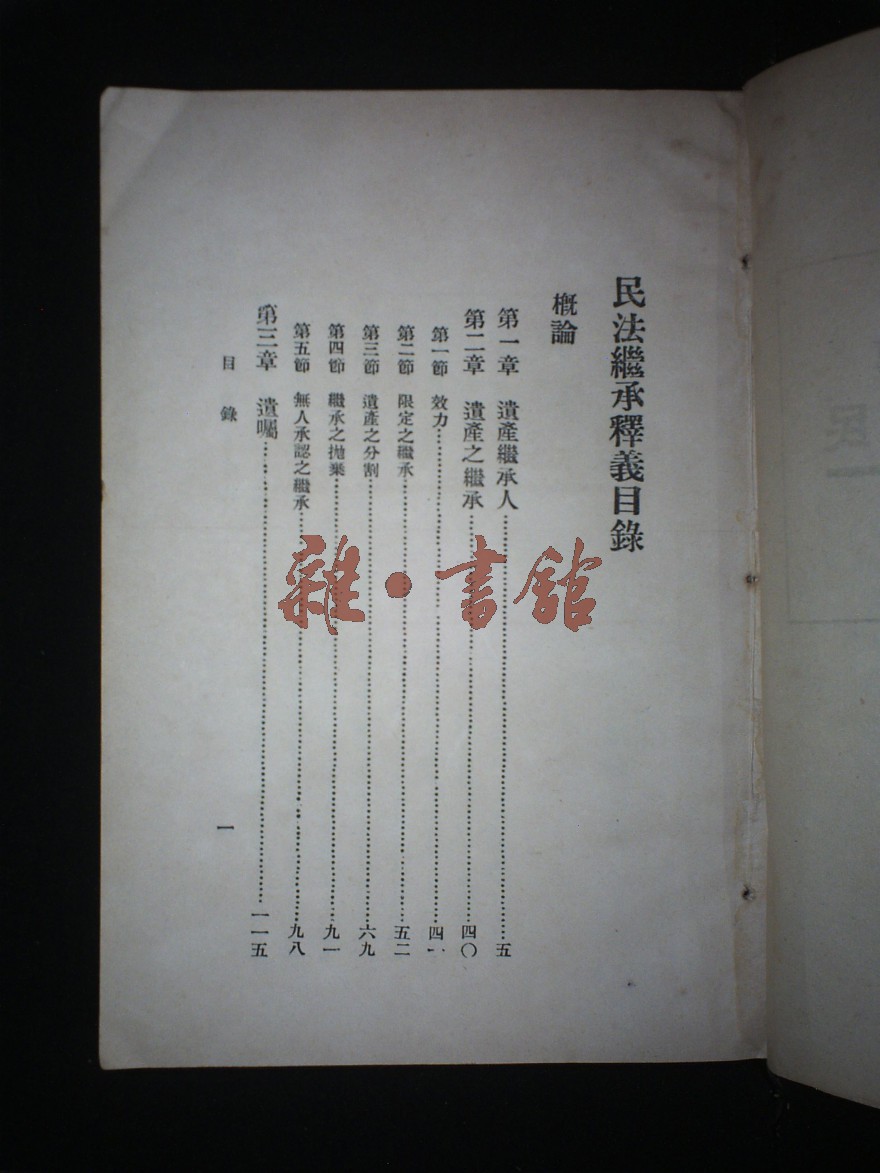 民法繼承釋義目錄
概論
第一章 遺產繼承人……五
第二章 遺產之繼承……四〇
第一節 效力……四一
第二節 限定之繼承……五二
第三節 遺產之分割……六九
第四節 繼承之抛棄……九一
第五節 無人承認之繼承……九八
第三章 遺囑……一一五
目錄
一
雜·書館
民